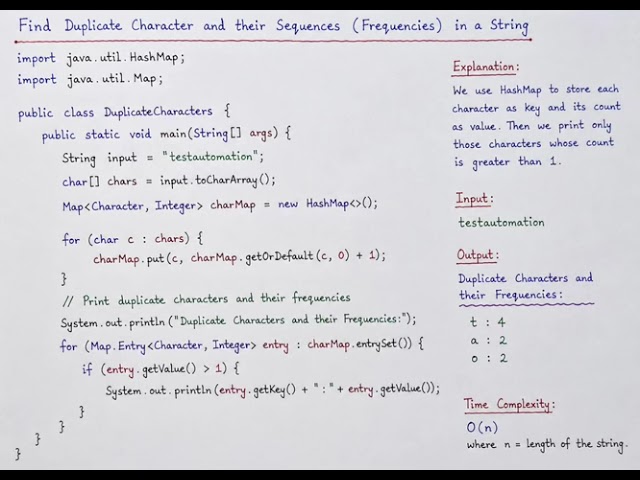 Find Duplicate Character and their Sequences (Frequencies) in a String
import java.util.HashMap;
import java.util.Map;
public class DuplicateCharacters {
public static void main(String[] args) {
String input = "testautomation";
char[] chars = input.toCharArray();
Map<Character, Integer> charMap = new HashMap<>();
for (char c : chars) {
charMap.put(c, charMap.getOrDefault(c, 0) + 1);
}
// Print duplicate characters and their frequencies
System.out.println("Duplicate Characters and their Frequencies:");
for (Map.Entry<Character, Integer> entry : charMap.entrySet()) {
if (entry.getValue() > 1) {
System.out.println(entry.getKey() + " : " + entry.getValue());
}
}
}
}
Explanation:
We use HashMap to store each
character as key and its count
as value. Then we print only
those characters whose count
is greater than 1.
Input:
testautomation
Output:
Duplicate Characters and
their Frequencies:
t : 4
a : 2
o : 2
Time Complexity:
O(n)
where n = length of the string.